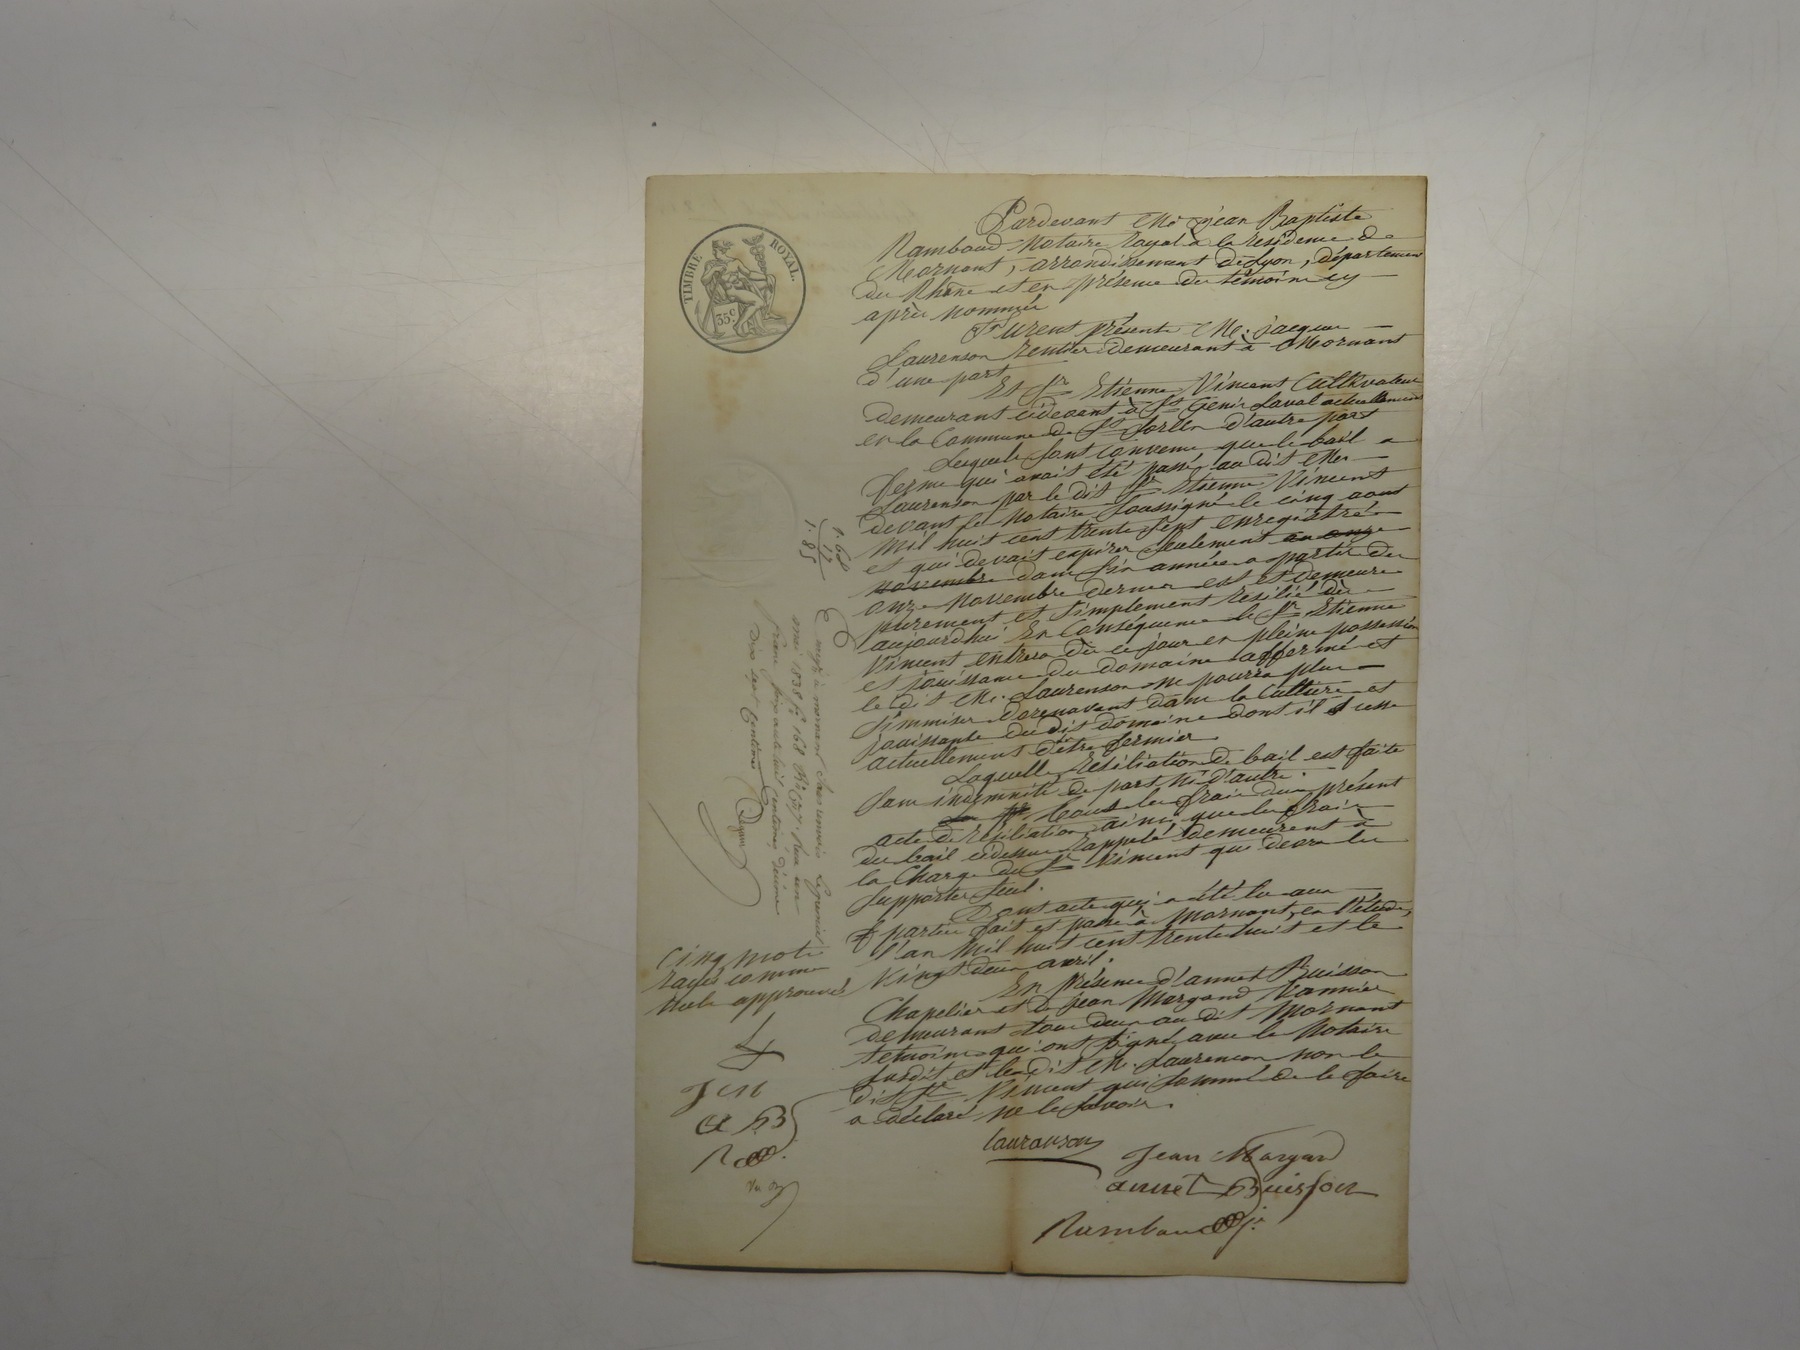 TIMBRE ROYAL
35 c
Pardevant Me jean Baptiste
Rambaud Notaire Royal à la résidence de
Mornant, arrondissement de Lyon, département
du Rhône et en présence des témoins cy
après nommés
Furent présents Mr. jacques
Laurenson rentier demeurant à Mornant
d'une part
Et Sr Etienne Vincent Cultivateur
demeurant cidevant à St Genis Laval actuellement
en la Commune de St Sorlin d'autre part
Lesquels sont convenus que le bail a
ferme qui avait été passé au dit Mr
Laurenson par le dit Sr Etienne Vincent
devant le Notaire soussigné le cinq aout
mil huit cent trente sept enregistré
et qui devait expirer seulement au onze
novembre dans six années a partir du
onze novembre dernier est et demeure
purement et simplement résilié dès
aujourdhui En Conséquence le Sr Etienne
Vincent entrera dès ce jour en pleine possession
et jouissance du domaine affermé et
le dit Mr. Laurenson ne pourra plus
s'immiser dorenavant dans la Culture et
jouissance du dit domaine dont il cesse
actuellement d'être fermier
Laquelle résiliation de bail est faite
sans indemnité de part ni d'autre.
Tous les frais du présent
acte de résiliation ainsi que les frais
du bail cidessus rappelé demeurent à
la Charge du Sr Vincent qui devra les
supporter seul.
Dont acte qui a été lu aux
parties fait et passé à Mornant, en l'étude,
l'an mil huit cent trente huit et le
vingt deux avril.
En présence d'annet Buisson
Chapelier et de jean Morgand Vannier
demeurant tous deux au dit Mornant
témoins qui ont signé avec le Notaire
susdit et le dit Mr. Laurenson non le
dit Sr Vincent qui sommé de le faire
a déclaré ne le savoir.
lauranson
Jean Morgand
annet Buisson
Rambaud
1.68
17
1.85
Enrgé à mornant
mai 1838 fo 168 Ro
franc soixante huit centimes, décime
dix sept Centimes
Cinq mots
rayés comme
nuls approuvés
L
J M
a B
R